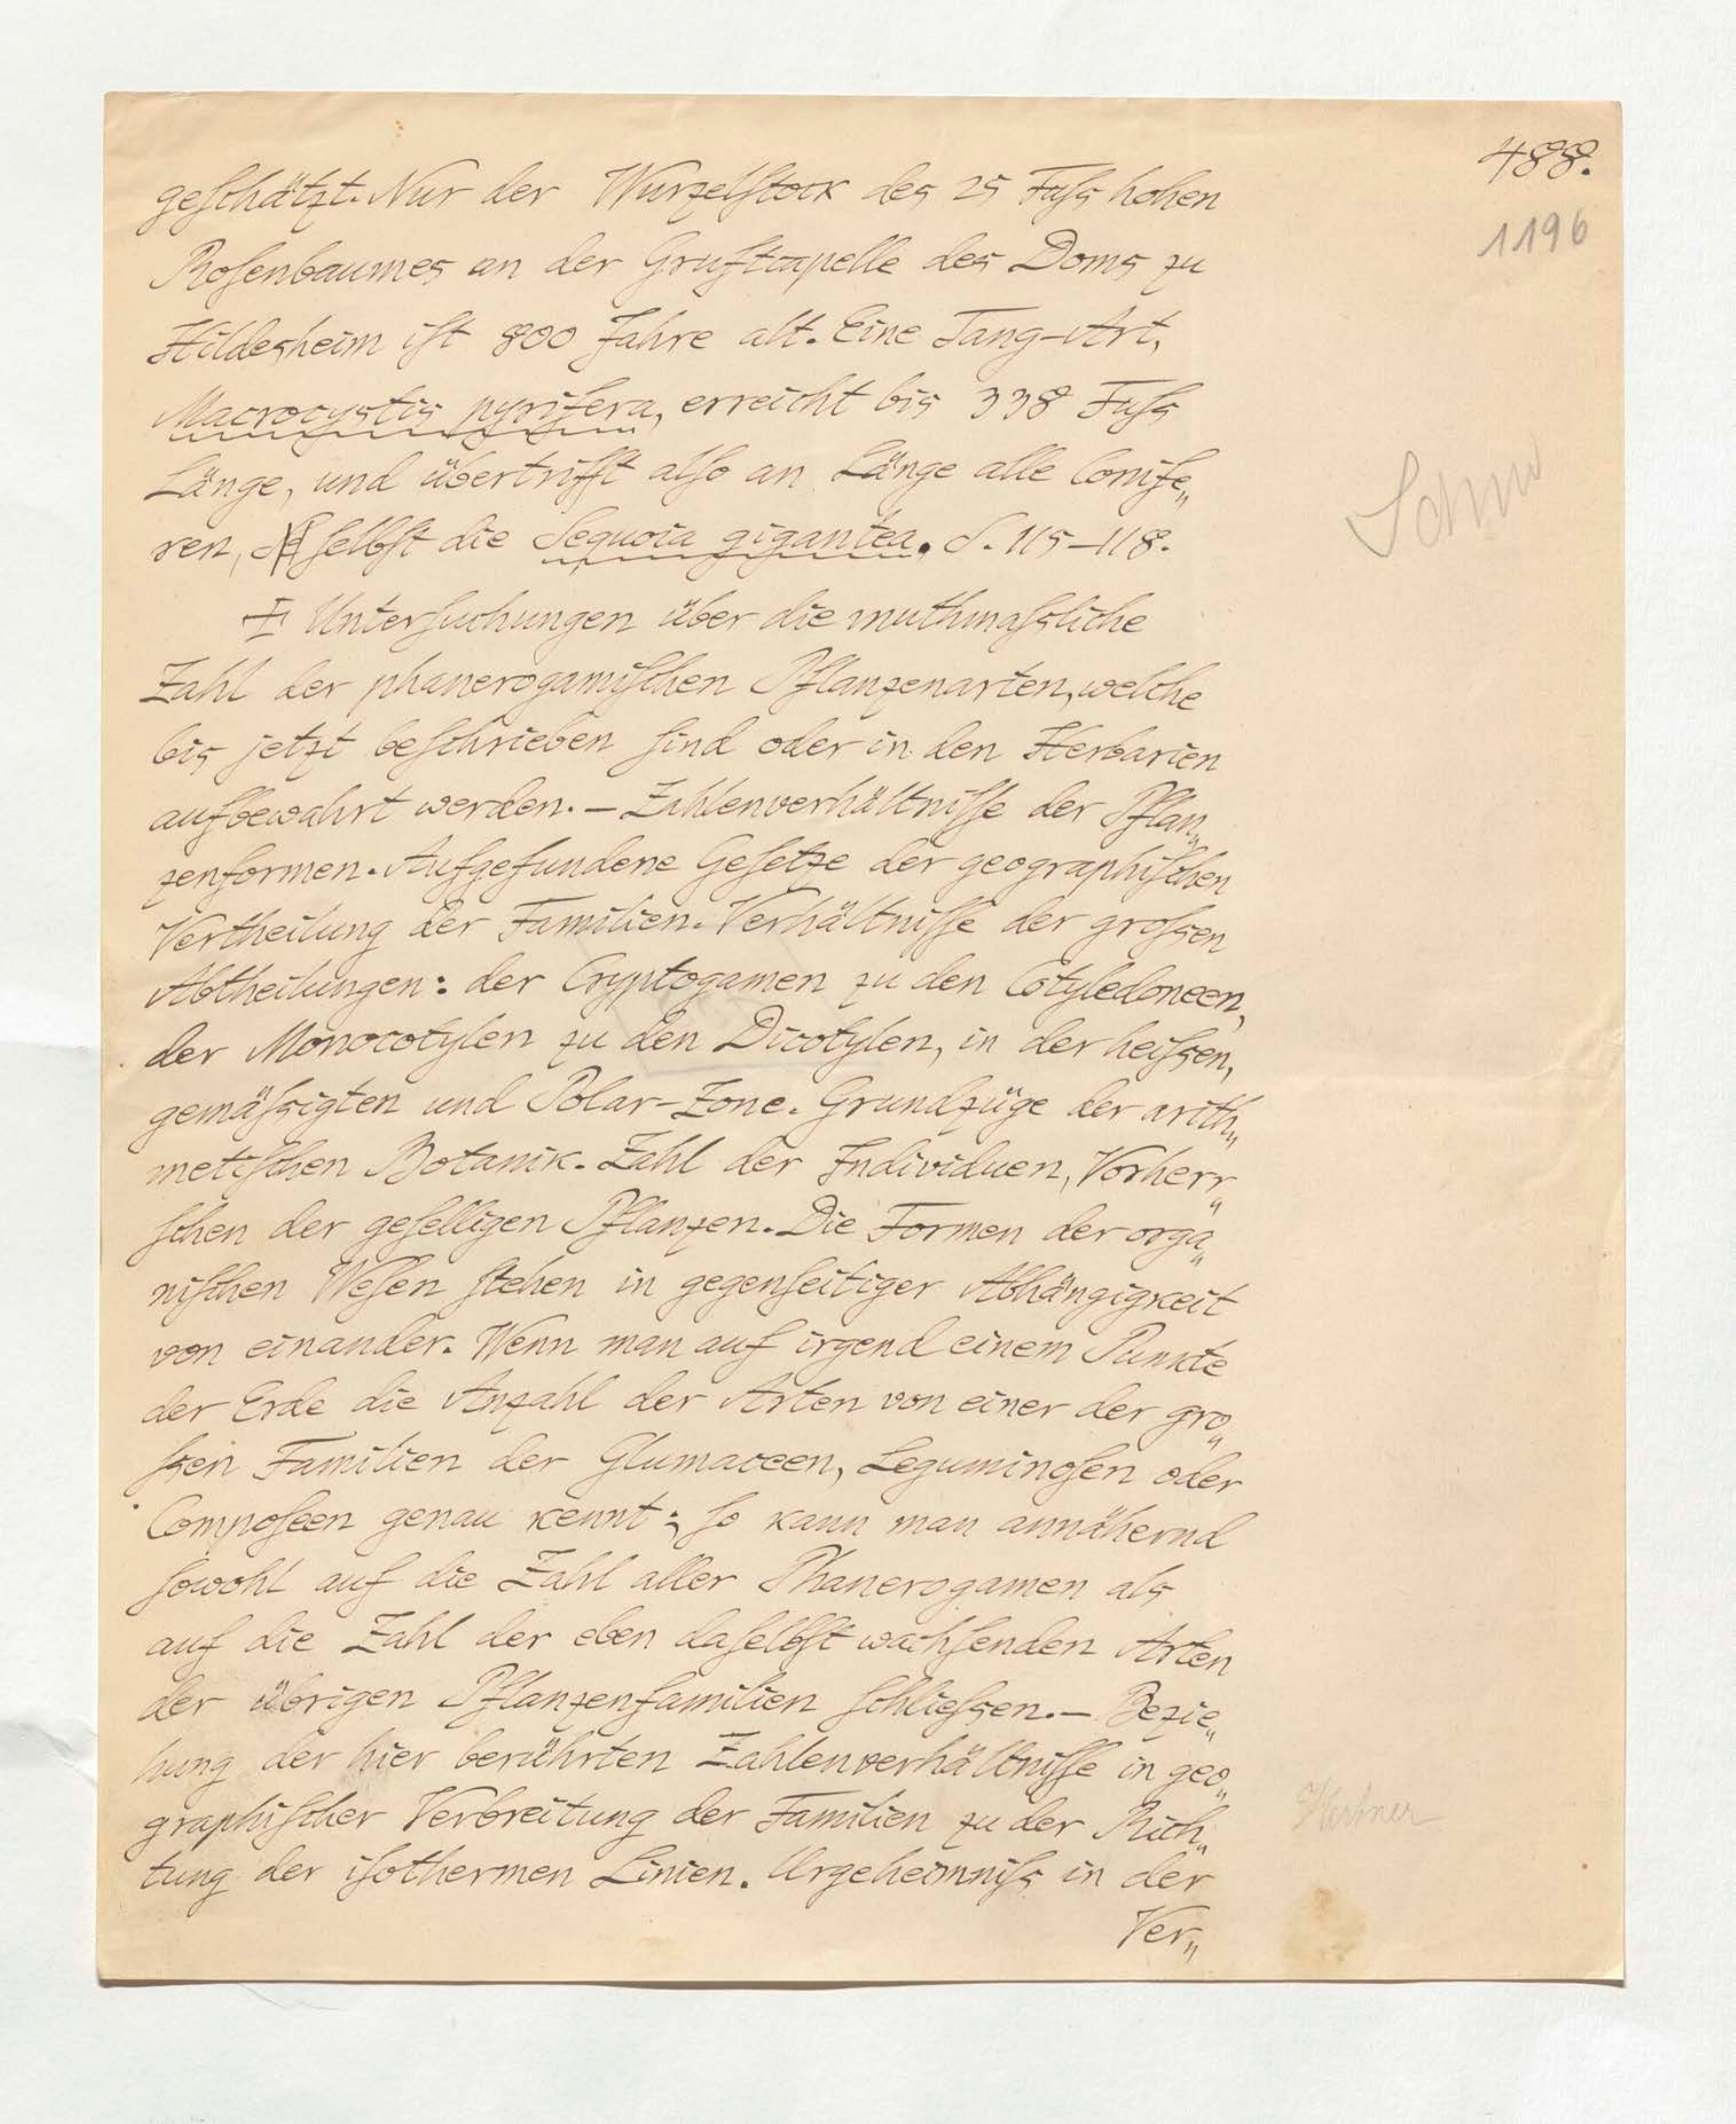 488.
1196
geschätzt. Nur der Wurzelstock des 25 Fuſs hohen
Rosenbaumes an der Gruftcapelle des Doms zu
Hildesheim ist 800 Jahre alt. Eine Tang-Art,
Macrocystis pyrifera, erreicht bis 338 Fuſs
Länge, und übertrifft also an Länge alle Conife„
ren, selbst die Sequoia gigantea. S. 115–118.
Untersuchungen über die muthmaſsliche
Zahl der phanerogamischen Pflanzenarten, welche
bis jetzt beschrieben sind oder in den Herbarien
aufbewahrt werden. – Zahlenverhältnisse der Pflan„
zenformen. Aufgefundene Gesetze der geographischen
Vertheilung der Familien. Verhältnisse der groſsen
Abtheilungen: der Cryptogamen zu den Cotyledoneen,
der Monocotylen zu den Dicotylen, in der heiſsen,
gemäſsigten und Polar-Zone. Grundzüge der arith„
metischen Botanik. Zahl der Individuen, Vorherr„
schen der geselligen Pflanzen. Die Formen der orga„
nischen Wesen stehen in gegenseitiger Abhängigkeit
von einander. Wenn man auf irgend einem Punkte
der Erde die Anzahl der Arten von einer der gro„
ſsen Familien der Glumaceen, Leguminosen oder
Composeen genau kennt; so kann man annähernd
sowohl auf die Zahl aller Phanerogamen als
auf die Zahl der eben daselbst wachsenden Arten
der übrigen Pflanzenfamilien schlieſsen. – Bezie„
hung der hier berührten Zahlenverhältnisse in geo„
graphischer Verbreitung der Familien zu der Rich„
tung der isothermen Linien. Urgeheimniſs in der
Ver„